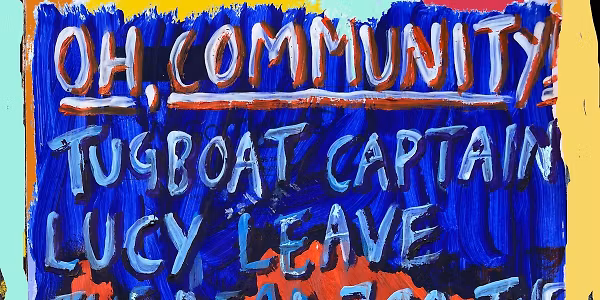 OH, COMMUNITY!
TUGBOAT CAPTAIN
LUCY LEAVE